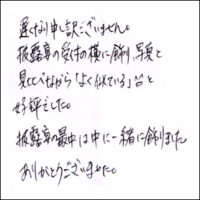 遅くなり申し訳ございません。
披露宴の受付の横に飾り、写真と
見比べながら「よく似ている」など
好評でした。
披露宴の最中は中に一緒に飾りました
ありがとうございました。